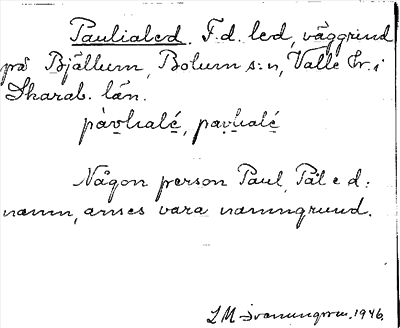 Paulialed. F.d. led, väggrind
på Bjällum, Bolum s:n, Valle hr. i
Skarab. län.
påvlialé, pavlialé
Någon person Paul, Pål e d:
namn, anses vara namngrund.
1946.